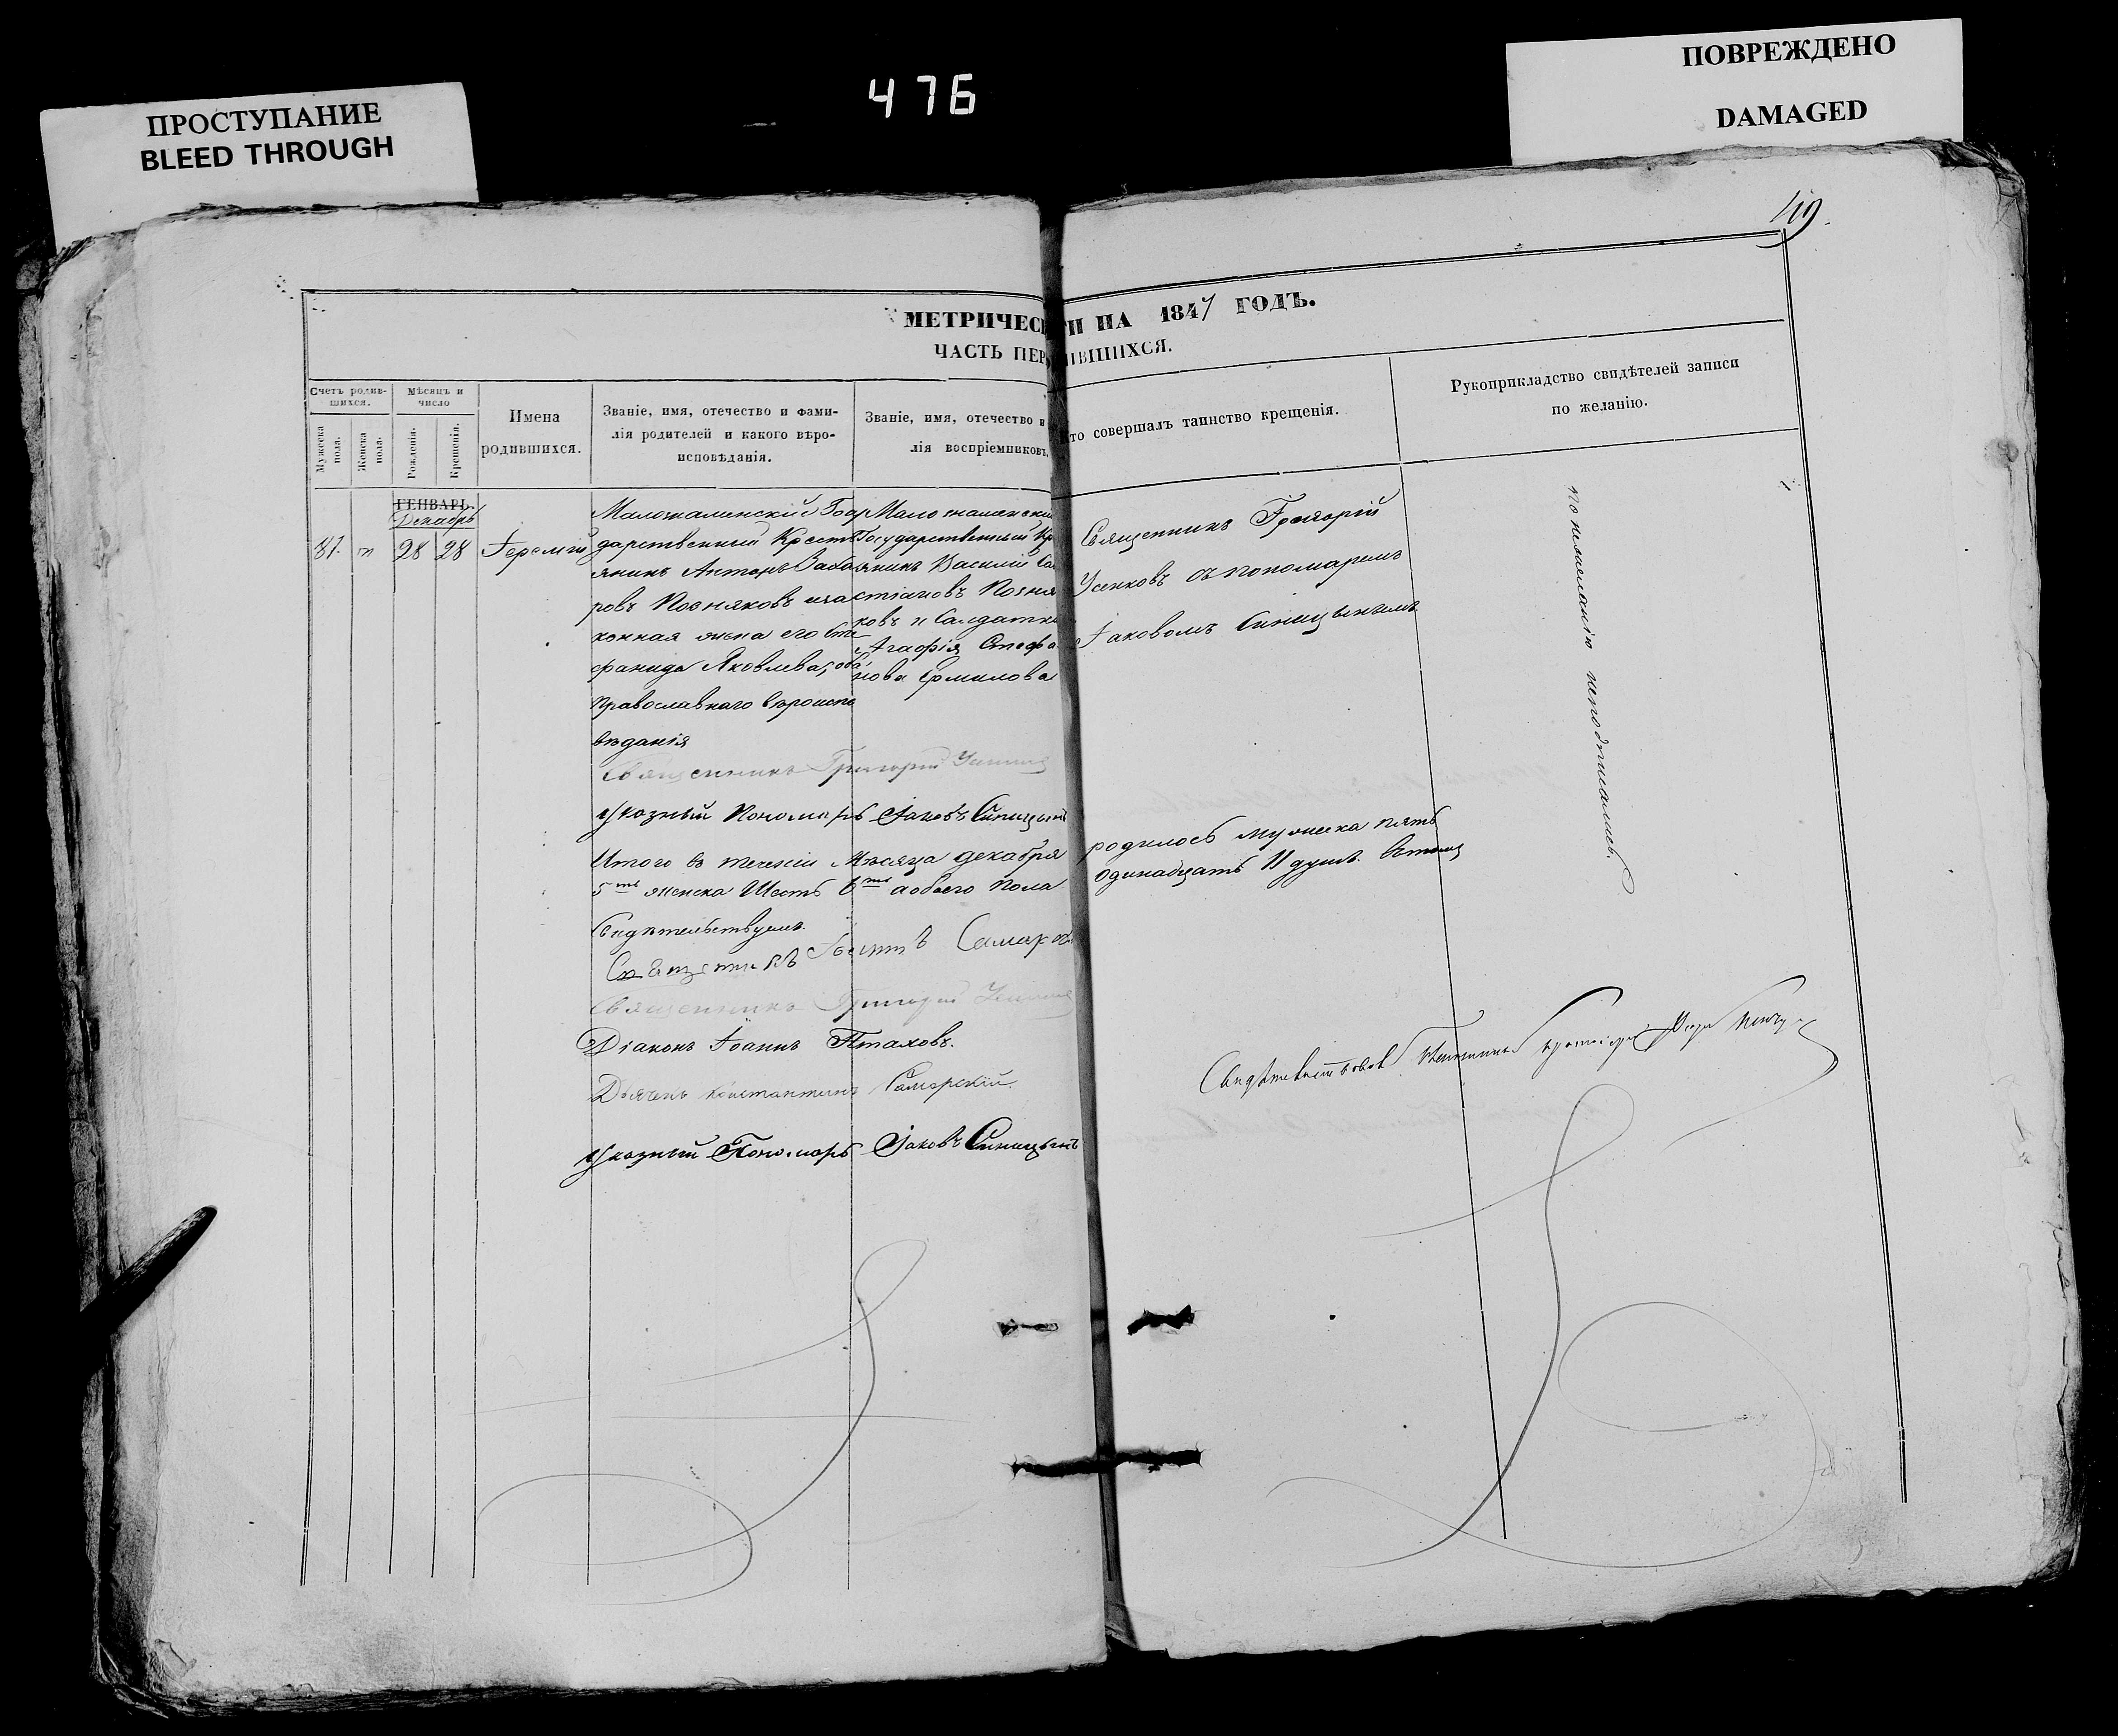 ПРОСТУПАНИЕ
BLEED THROUGH
476
ПОВРЕЖДЕНО
DAMAGED
МЕТРИЧЕС ТИ НА 1847 ГОДЪ.
ЧАСТЬ ПЕР ИВШИХСЯ.
Счетъ родив-
шихся.
Мужеска пола.
Женска пола.
Мѣсяцъ и
число
Рожденія.
Крещенія.
Имена
родившихся.
Званіе, имя, отечество и фами-
лія родителей и какого вѣро-
исповѣданія.
Званіе, имя, отечество и
лія воспріемниковъ.
то совершалъ таинство крещенія.
Рукоприкладство свидѣтелей записи
по желанію.
ГЕНВАРЬ.
Декабрь
28 28
Іеремій
дарственный Крестъ
янинъ Антонъ Заха
ровъ Позняковъ иза
конная жена его Сте
фанида Яковлева, оба
православнаго вѣроиспо
вѣданія
Мало знаменскій
Государственный Кр
янинъ Василій
стіановъ Позня
ковъ и Салдатка
Агафія Стефа
нова Ермилова
Священникъ Григорій
Усенковъ съ пономаремъ
Іаковомъ Синицынымъ
по нежеланію неподписались.
Священникъ Григорій
Указный Пономарь Іаковъ Синицынъ
Итого въ теченіи Мѣсяца декабря родилось мужеска пять
5ть женска Шесть 6ть а обоего пола одинадцать 11 душъ. Въ томъ
Свидѣтельствуемъ.
Священникъ
Священникъ Григорій
Діаконъ Іоаннъ Птаховъ.
Дьячекъ Константинъ Самарскій.
Указный Пономарь Іаковъ Синицынъ